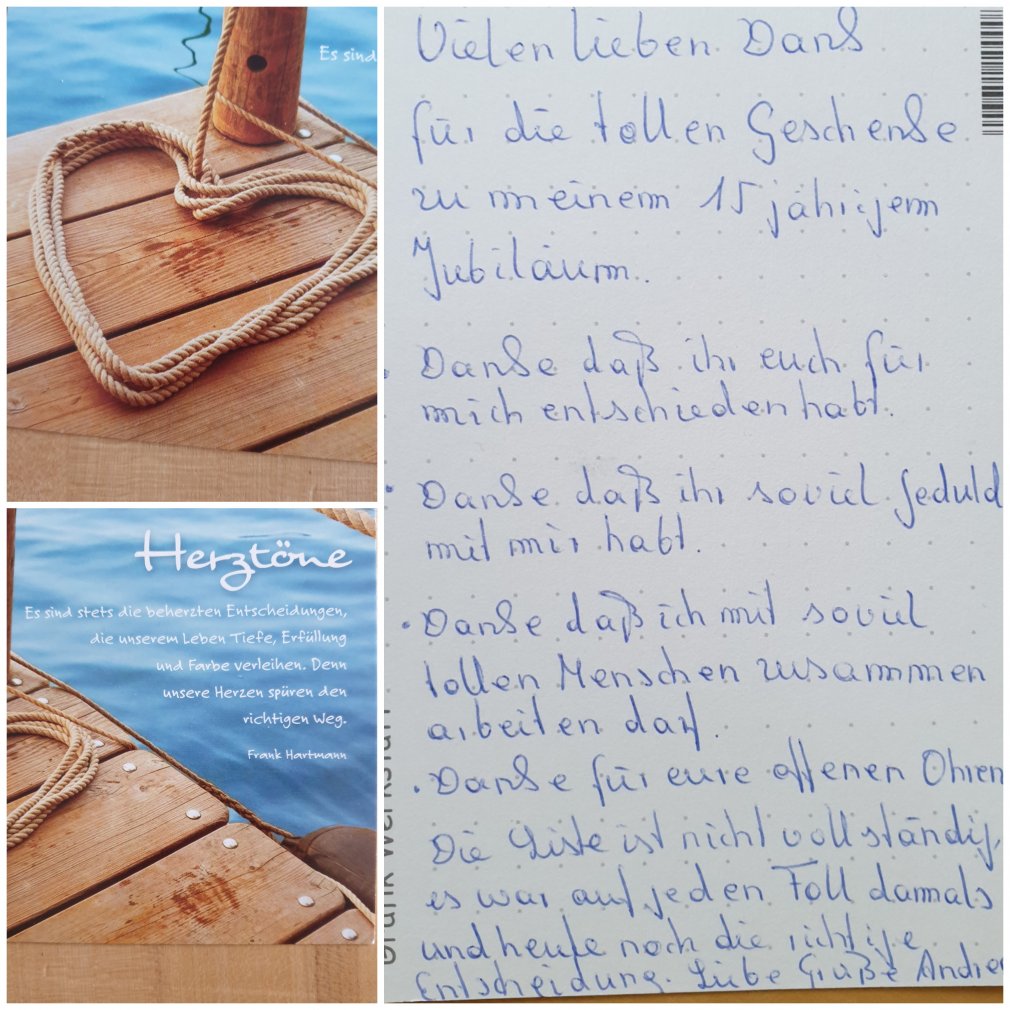 Es sind
Herztöne
Es sind stets die beherzten Entscheidungen,
die unserem Leben Tiefe, Erfüllung
und Farbe verleihen. Denn
unsere Herzen spüren den
richtigen Weg.
Frank Hartmann
Vielen lieben Dank
für die tollen Geschenke
zu meinem 15 jährigem
Jubiläum.
Danke daß ihr euch für
mich entschieden habt.
• Danke daß ihr soviel Geduld
mit mir habt.
• Danke daß ich mit soviel
tollen Menschen zusammen
arbeiten darf.
• Danke für eure offenen Ohren
Die Liste ist nicht vollständig,
es war auf jeden Fall damals
und heute noch die richtige
Entscheidung. Liebe Grüße Andrea